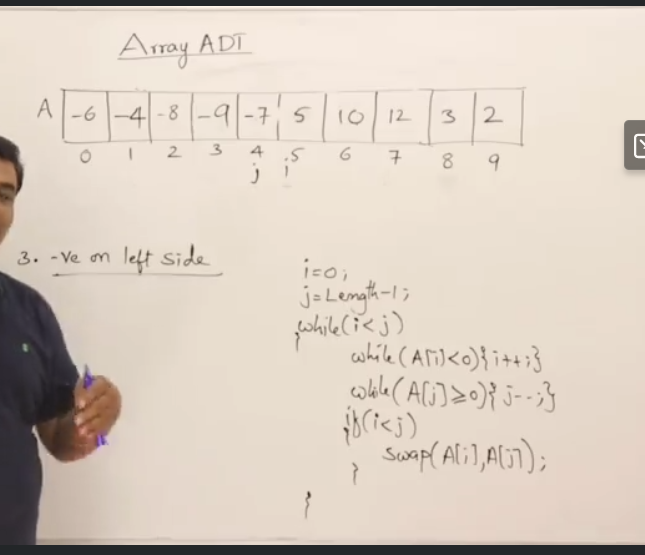 Array ADT
A -6 -4 -8 -9 -7 5 10 12 3 2
0 1 2 3 4 5 6 7 8 9
j i
3. -ve on left side
i=0;
j=Length-1;
while(i<j)
{
while(A[i]<0){i++;}
while(A[j]≥0){j--;}
if(i<j)
{
swap(A[i],A[j]);
}
}